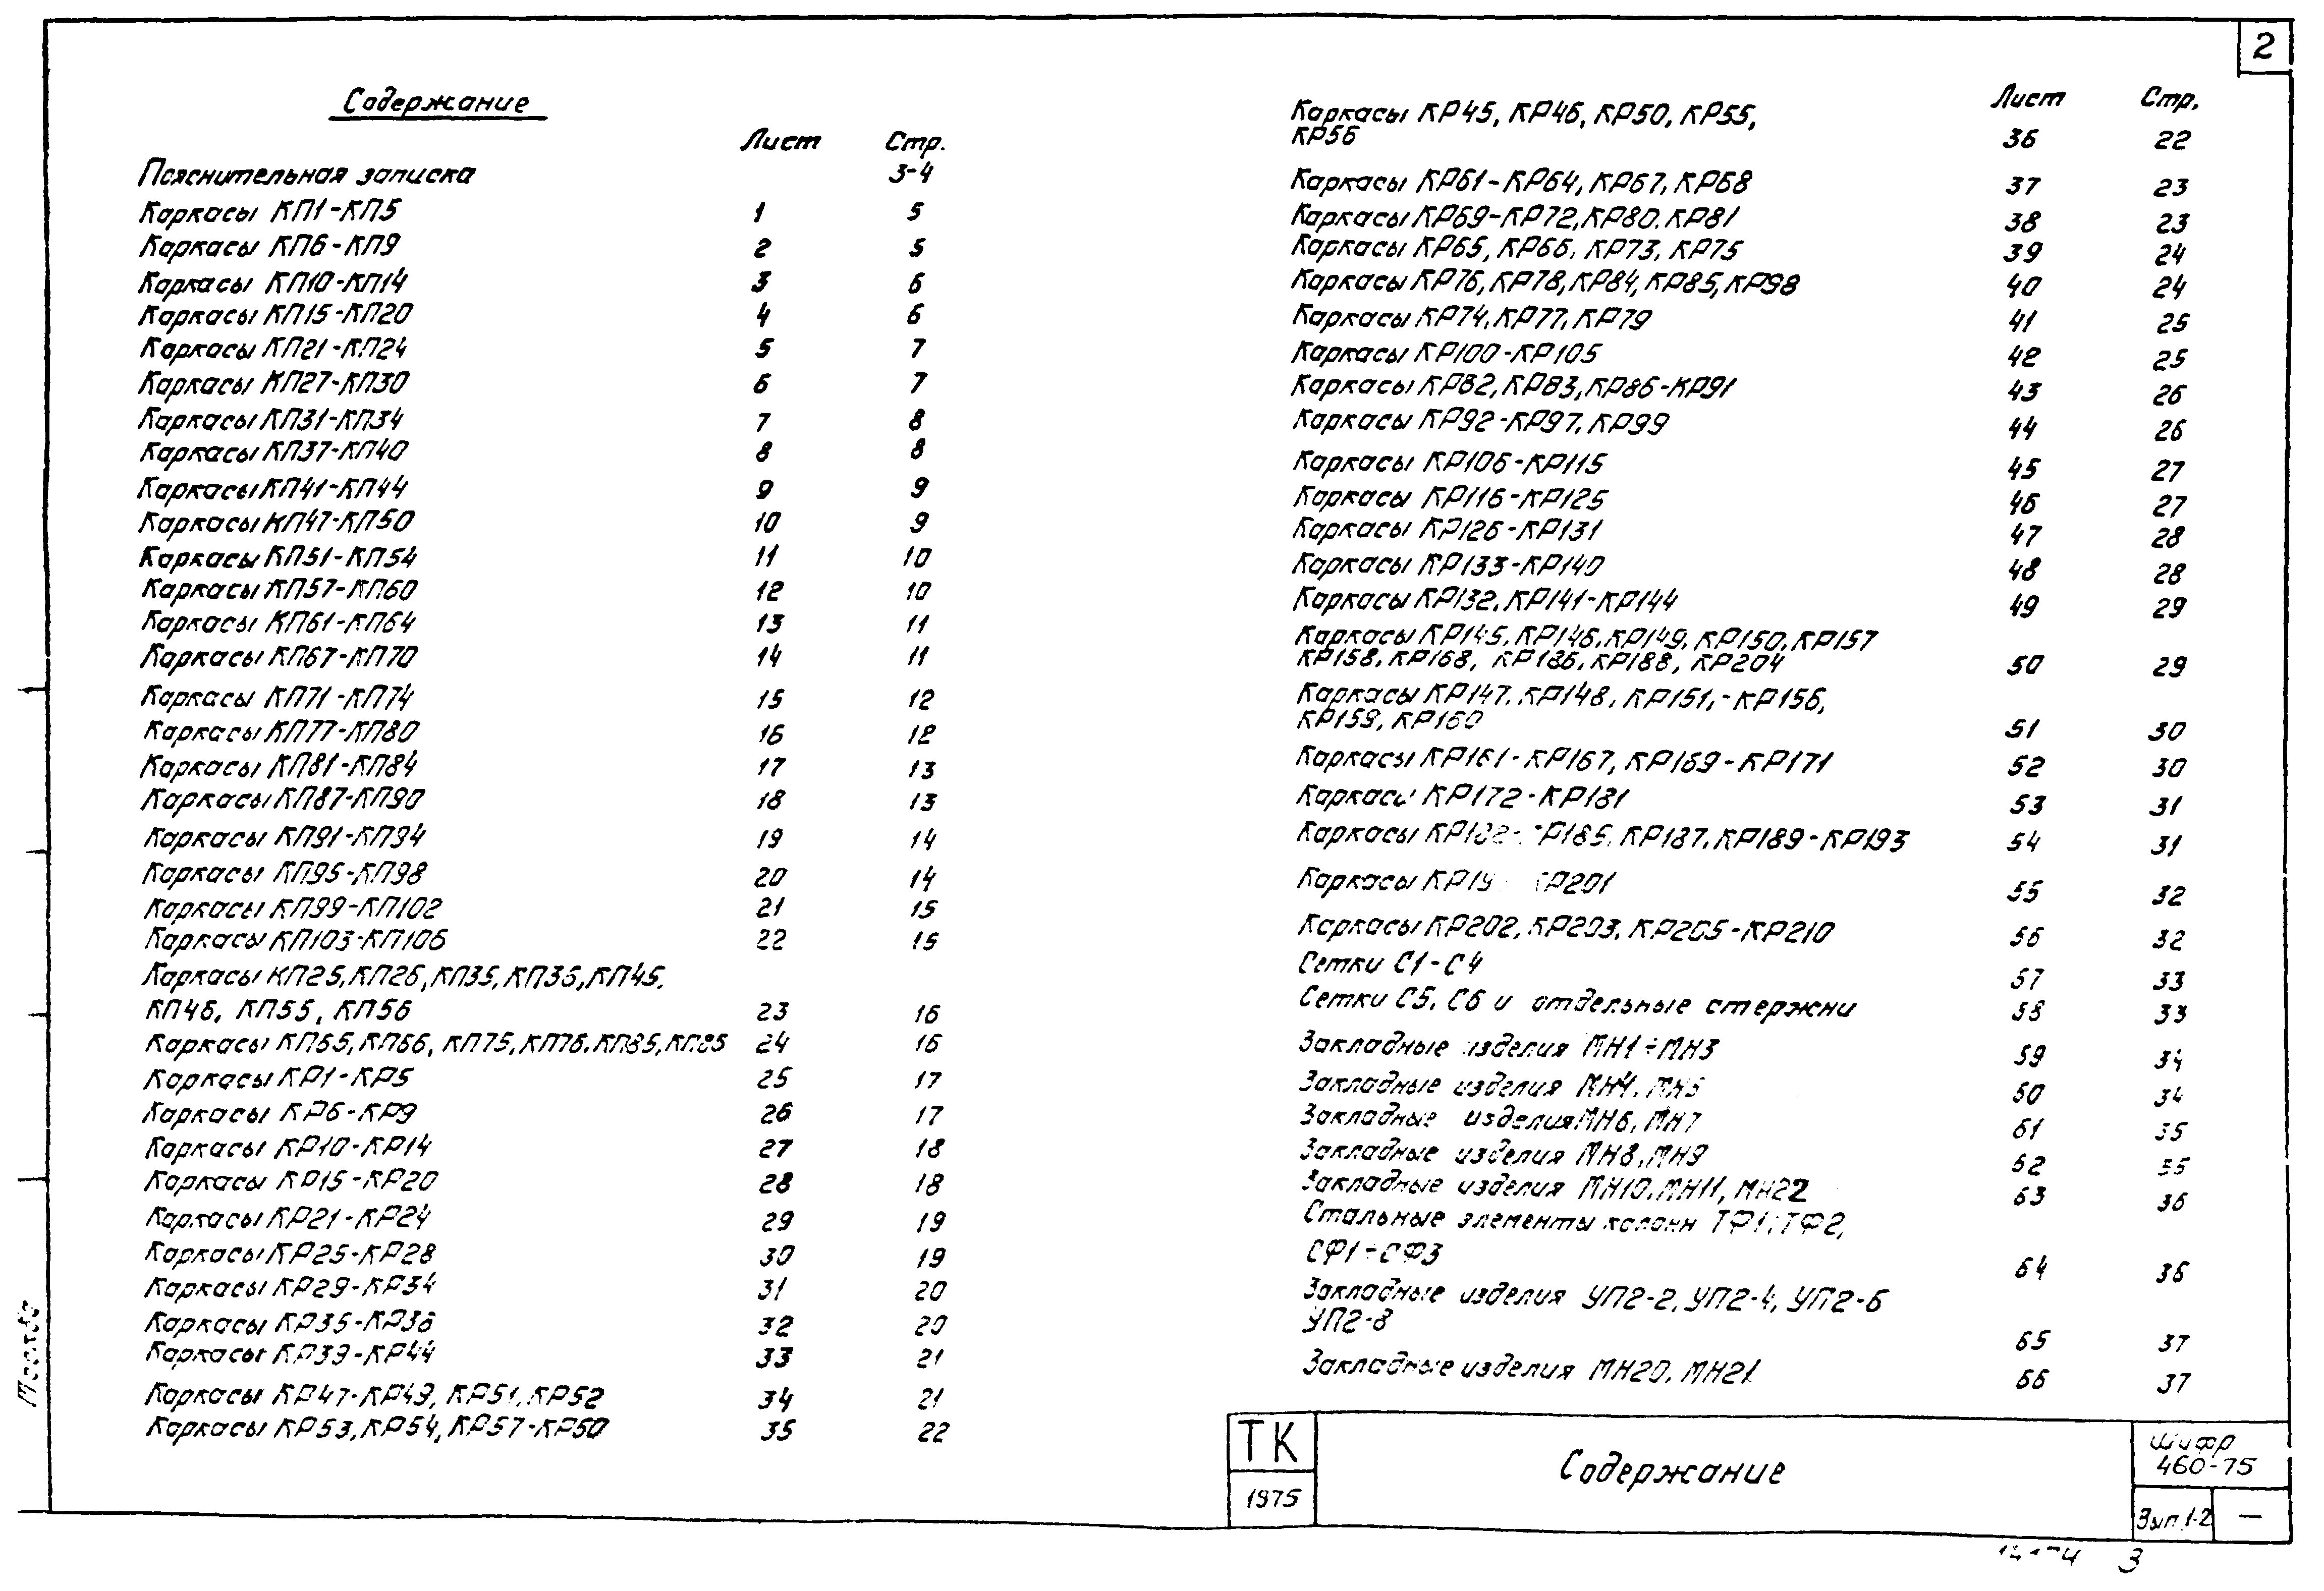 2
Содержание
Лист Стр.
Пояснительная записка 3-4
Каркасы КП1-КП5 1 5
Каркасы КП6-КП9 2 5
Каркасы КП10-КП14 3 6
Каркасы КП15-КП20 4 6
Каркасы КП21-КП24 5 7
Каркасы КП27-КП30 6 7
Каркасы КП31-КП34 7 8
Каркасы КП37-КП40 8 8
Каркасы КП41-КП44 9 9
Каркасы КП47-КП50 10 9
Каркасы КП51-КП54 11 10
Каркасы КП57-КП60 12 10
Каркасы КП61-КП64 13 11
Каркасы КП67-КП70 14 11
Каркасы КП71-КП74 15 12
Каркасы КП77-КП80 16 12
Каркасы КП81-КП84 17 13
Каркасы КП87-КП90 18 13
Каркасы КП91-КП94 19 14
Каркасы КП95-КП98 20 14
Каркасы КП99-КП102 21 15
Каркасы КП103-КП106 22 15
Каркасы КП25, КП26, КП35, КП36, КП45,
КП46, КП55, КП56 23 16
Каркасы КП65, КП66, КП75, КП76, КП85, КП86 24 16
Каркасы КР1-КР5 25 17
Каркасы КР6-КР9 26 17
Каркасы КР10-КР14 27 18
Каркасы КР15-КР20 28 18
Каркасы КР21-КР24 29 19
Каркасы КР25-КР28 30 19
Каркасы КР29-КР34 31 20
Каркасы КР35-КР38 32 20
Каркасы КР39-КР44 33 21
Каркасы КР47-КР49, КР51, КР52 34 21
Каркасы КР53, КР54, КР57-КР60 35 22
Лист Стр.
Каркасы КР45, КР46, КР50, КР55,
КР56 36 22
Каркасы КР61-КР64, КР67, КР68 37 23
Каркасы КР69-КР72, КР80, КР81 38 23
Каркасы КР65, КР66, КР73, КР75 39 24
Каркасы КР76, КР78, КР84, КР85, КР98 40 24
Каркасы КР74, КР77, КР79 41 25
Каркасы КР100-КР105 42 25
Каркасы КР82, КР83, КР86-КР91 43 26
Каркасы КР92-КР97, КР99 44 26
Каркасы КР106-КР115 45 27
Каркасы КР116-КР125 46 27
Каркасы КР126-КР131 47 28
Каркасы КР133-КР140 48 28
Каркасы КР132, КР141-КР144 49 29
Каркасы КР145, КР146, КР149, КР150, КР157
КР158, КР168, КР186, КР188, КР204 50 29
Каркасы КР147, КР148, КР151,-КР156,
КР159, КР160 51 30
Каркасы КР161-КР167, КР169-КР171 52 30
Каркасы КР172-КР181 53 31
Каркасы КР182-КР185, КР187, КР189-КР193 54 31
Каркасы КР201 55 32
Каркасы КР202, КР203, КР205-КР210 56 32
Сетки С1-С4 57 33
Сетки С5, С6 и отдельные стержни 58 33
Закладные изделия МН1÷МН3 59 34
Закладные изделия МН4, МН5 60 34
Закладные изделия МН6, МН7 61 35
Закладные изделия МН8, МН9 62 35
Закладные изделия МН10, МН11, МН22 63 36
Стальные элементы колонн ТФ1, ТФ2,
СФ1÷СФ3 64 36
Закладные изделия УП2-2, УП2-4, УП2-6
УП2-8 65 37
Закладные изделия МН20, МН21 66 37
ТК
1975
Содержание
Шифр
460-75
Вып.1-2 —
3